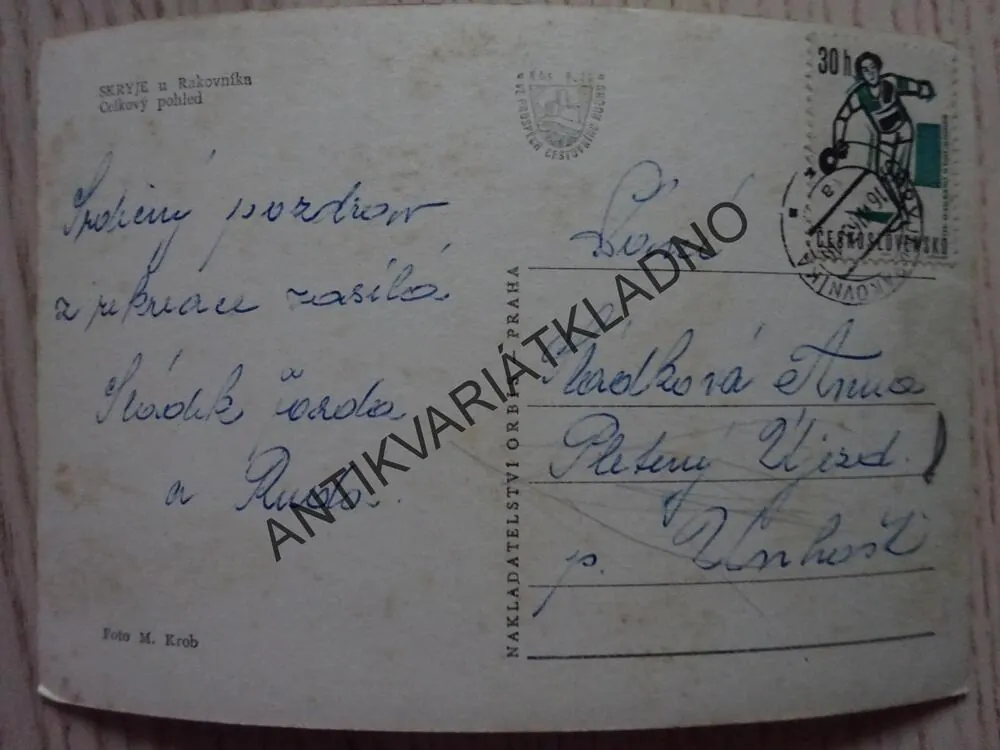 SKRYJE u Rakovníka
Celkový pohled
VE PROSPĚCH CESTOVNÍHO RUCHU
30 h
ČESKOSLOVENSKO
Srdečný pozdrav
z rekreace zasílá
Sládek Jarda
a Ruda.
Sládková Anna
Pletený Újezd
p. Unhošť
NAKLADATELSTVÍ ORBIS, PRAHA
Foto M. Krob
ANTIKVARIÁTKLADNO